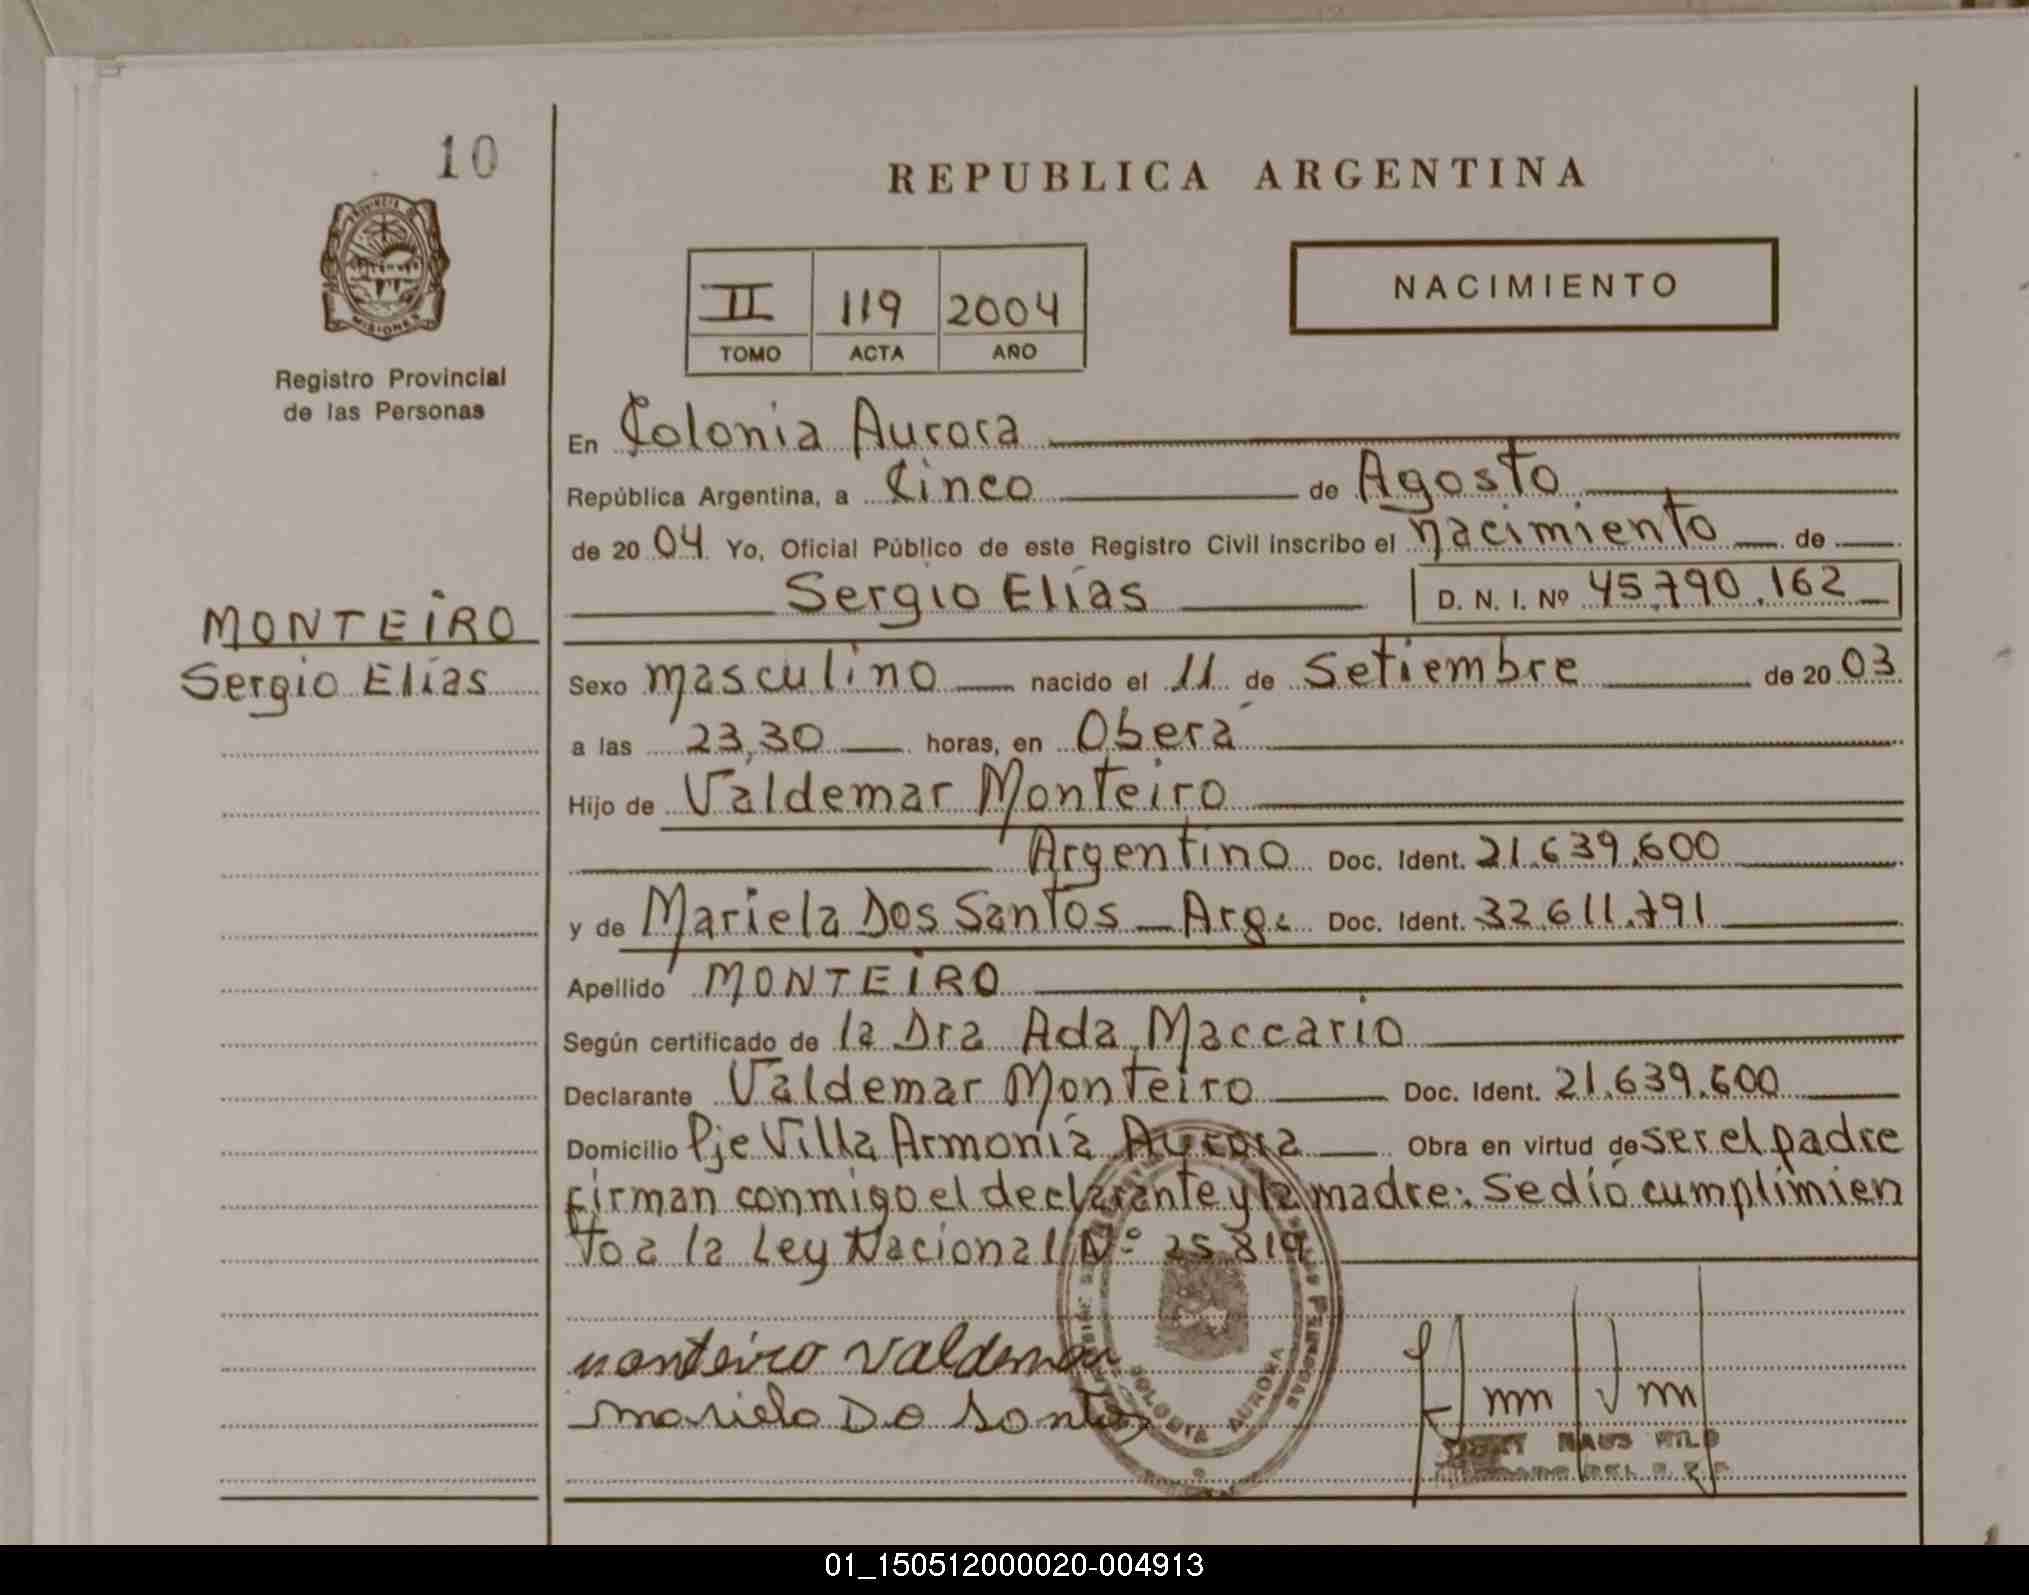 10
REPUBLICA ARGENTINA
PROVINCIA DE
MISIONES
NACIMIENTO
II 119 2004
TOMO ACTA AÑO
Registro Provincial
de las Personas
En Colonia Aurora
República Argentina, a Cinco de Agosto
de 20 04 Yo, Oficial Público de este Registro Civil inscribo el nacimiento de
Sergio Elías D. N. I. Nº 45.790.162
MONTEIRO
Sergio Elías
Sexo masculino nacido el 11 de Setiembre de 20 03
a las 23,30 horas, en Oberá
Hijo de Valdemar Monteiro
Argentino Doc. Ident. 21.639.600
y de Mariela Dos Santos Arg. Doc. Ident. 32.611.791
Apellido MONTEIRO
Según certificado de la Dra Ada Maccario
Declarante Valdemar Monteiro Doc. Ident. 21.639.600
Domicilio Pje Villa Armonía Aurora Obra en virtud de ser el padre
firman conmigo el declarante y la madre: Se dió cumplimien
to a la Ley Nacional Nº 25819
Monteiro Valdemar
Mariela Do Santos
COLONIA AURORA
HAUS WILD